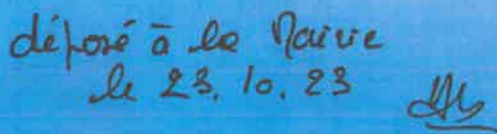 déposé à la Mairie
le 23.10.23